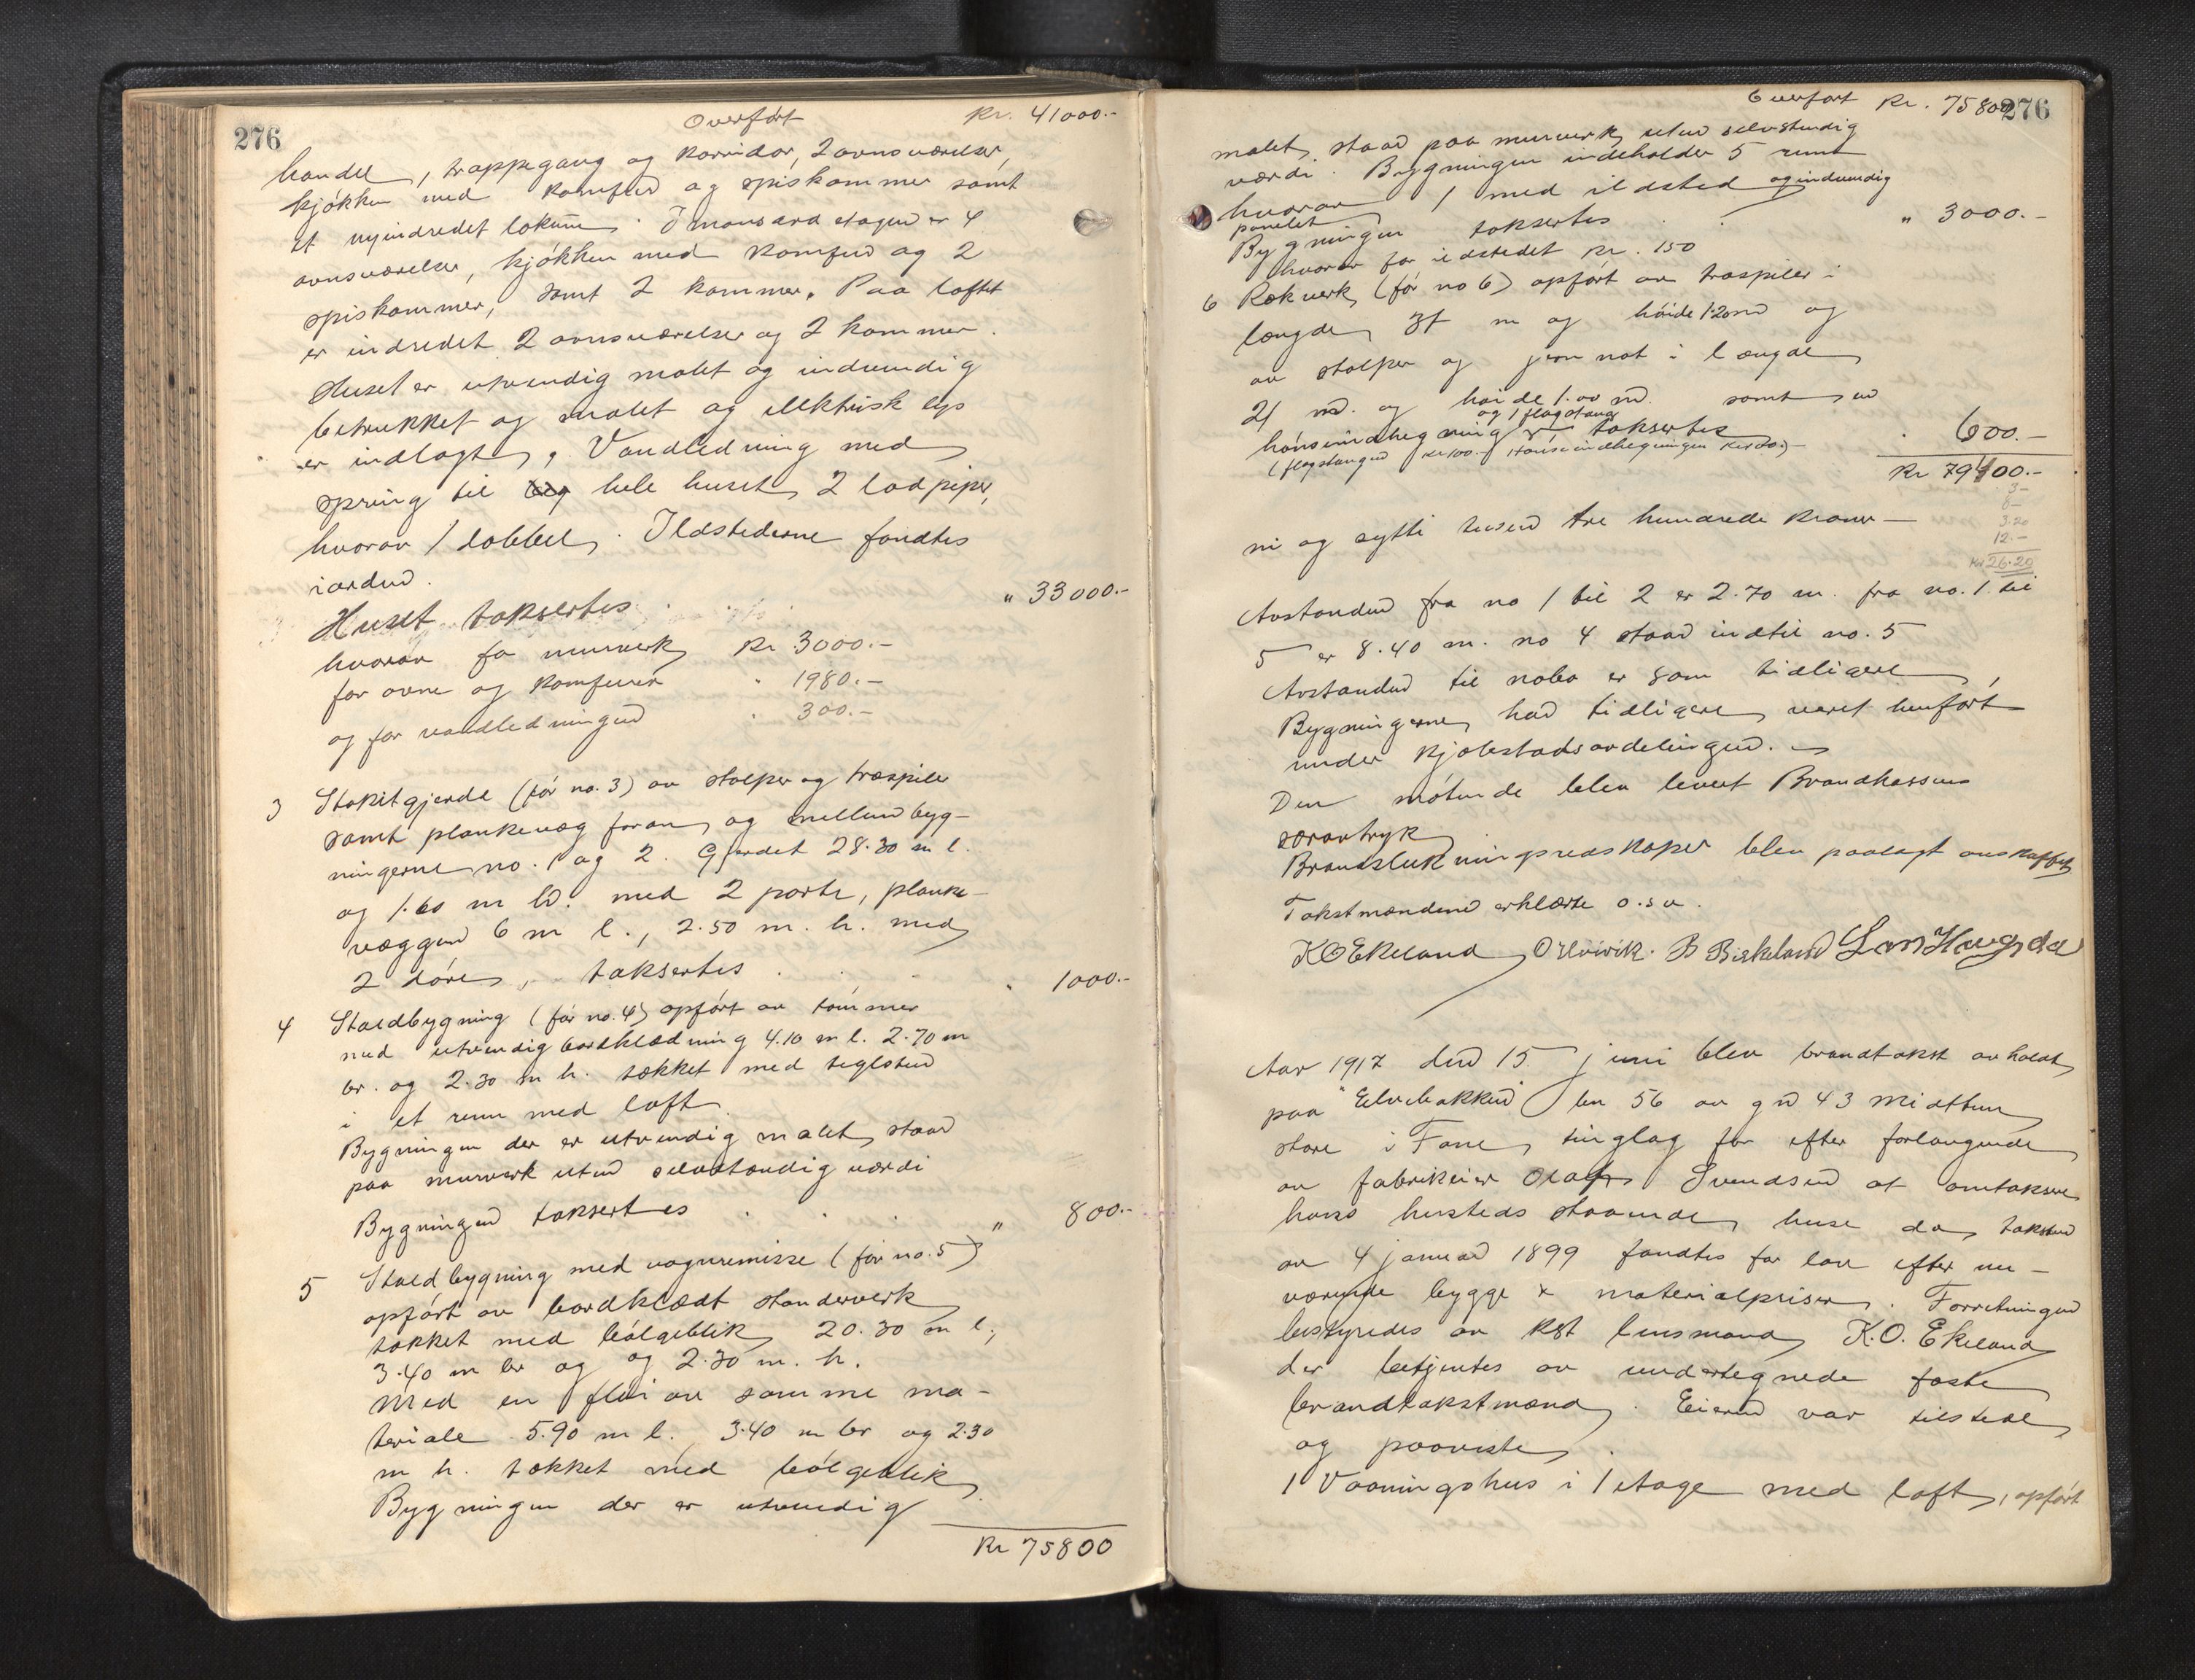 276
Overført Kr. 41000.-
handel, trappegang og korridor, 2 ovnsværelser,
kjøkken med komfur og spiskammer samt
et nyindredet lokum. I mansard etagen er 4
ovnsværelser, kjøkken med komfur og 2
spiskammer, samt 2 kammer. Paa loftet
er indredet 2 ovnsværelser og 2 kammer.
Huset er utvendig malet og indvendig
betrukket og malet og elektrisk lys
er indlagt, Vandledning med
spring til hele huset, 2 lodpiper,
hvorav 1 dobbel. Ildstederne fandtes
iorden.
Huset taksertes " 33000.-
hvorav for murverk Kr. 3000.-
for ovne og komfurer " 1980.-
og for vandledningen " 300.-
3 Stakitgjerde (før no. 3) av stolper og træspiler
samt plankevæg foran og mellem byg-
ningerne no. 1 og 2. Gjerdet 28.30 m l.
og 1.60 m h. med 2 porte, planke-
væggen 6 m l., 2.50 m. h. med
2 døre, taksertes " 1000.-
4 Staldbygning (før no. 4) opført av tømmer
med utvendig bordklædning 4.10 m l. 2.70 m
br. og 2.30 m h. tækket med teglsten
i et rum med loft.
Bygningen der er utvendig malet, staar
paa murverk uten selvstændig værdi
Bygningen taksertes " 800.-
5 Staldbygning med vognremisse (før no. 5)
opført av bordklædt standerverk
tækket med bølgeblik 20.30 m l.,
3.40 m br og og 2.30 m. h.
Med en fløi av samme ma-
teriale 5.90 m l. 3.40 m br og 2.30
m h. tækket med bølgeblik.
Bygningen der er utvendig
Kr 75800
276
Overført Kr. 75800
malet, staar paa murverk uten selvstendig
værdi. Bygningen indeholder 5 rum
hvorav 1 med ildsted og indvendig
panelet
Bygningen taksertes " 3000.-
hvorav for ildstedet kr. 150
6 Rekverk (før no 6) opført av træspiler i
længde 37 m og høide 1.20 m og
av stolper og jern nat i længde
21 m. og høide 1.00 m. samt en
og 1 flagstang
hønseindhegning taksertes " 600.-
(flagstangen kr 100.- Hønseindhegningen kr 100.)-
Kr 79400.-
3-
8-
3.20
12.-
Kr 26.20
ni og sytti tusen fire hundrede kroner -
Avstanden fra no 1 til 2 er 2.70 m. fra no. 1 til
5 er 8.40 m. no 4 staar indtil no. 5
Avstanden til nabo er som tidligere
Bygningerne har tidligere været henført
under kjøbstadsavdelingen.
Den møtende blev levert Brandkassens
særavtryk
Brandslukningsredskaper blev paalagt anskaffet
Takstmændene erklærte o.s.v.
K O Ekeland B Birkeland Lars Haugsda
Aar 1917 den 15 juni blev brandtakst avholdt
paa "Elvebakken" bn 56 av gn 43 Midttun
store i Fane tinglag for efter forlangende
av fabrikeier Olaf Svendsen at omtaksere
hans hersteds staaende huse da taksten
av 4 januar 1899 fandtes for lav efter nu-
værende bygge & materialpriser. Forretningen
bestyredes av kst lensmand K.O. Ekeland
der betjentes av undertegnede faste
brandtakstmænd. Eieren var tilstede
og paaviste.
1 Vaaningshus i 1 etage med loft, opført